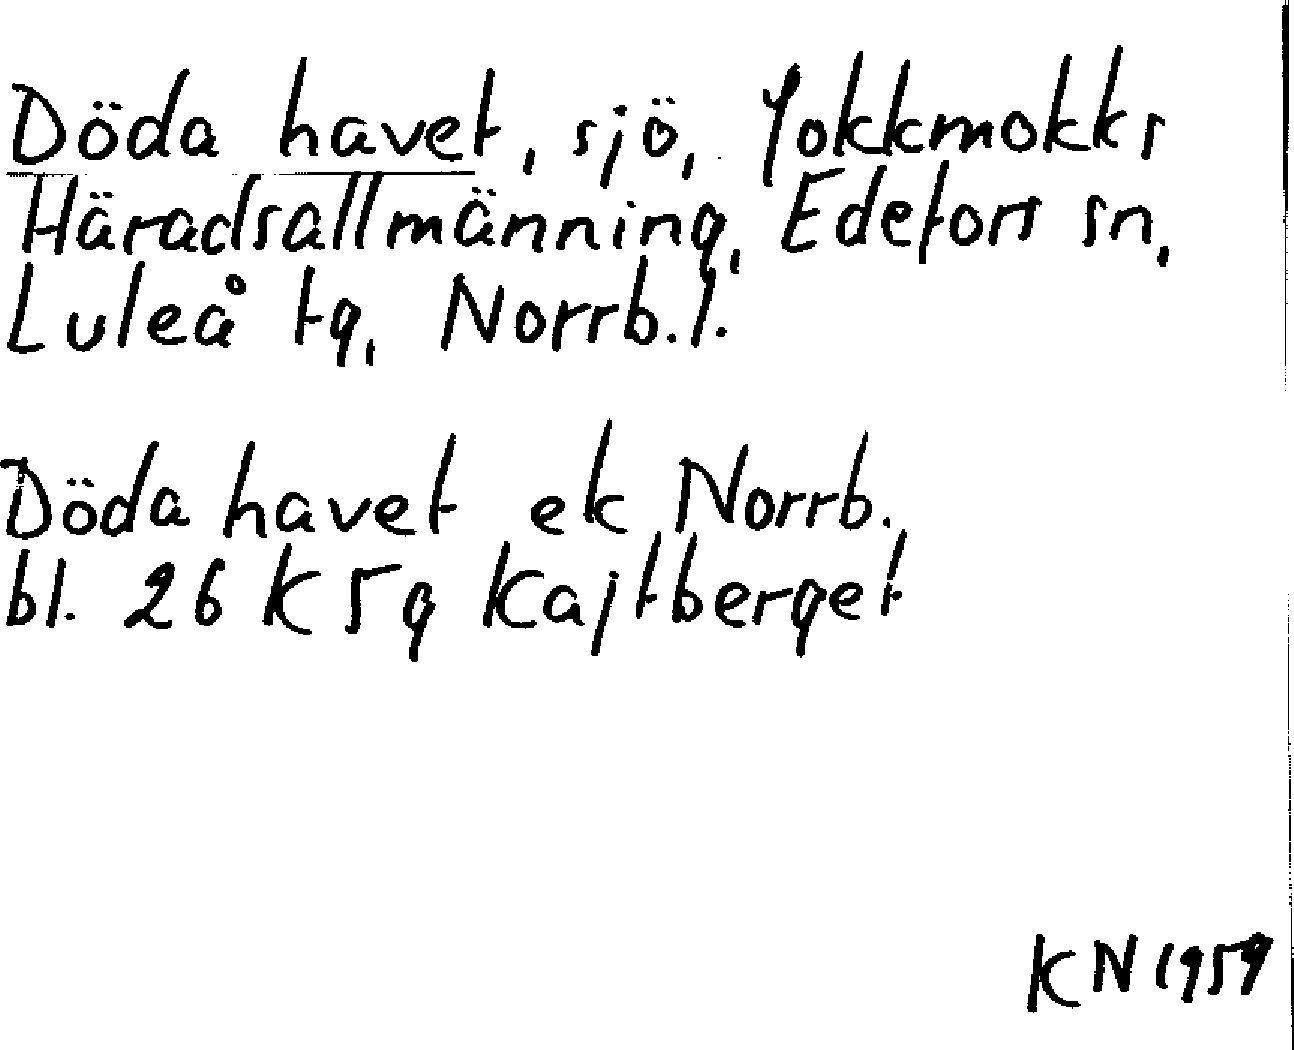 Döda havet, sjö, Jokkmokks
Häradsallmänning, Edefors sn,
Luleå tg, Norrb. l.
Döda havet ek Norrb.
bl. 26 K 5g Kajtberget
KN 1959